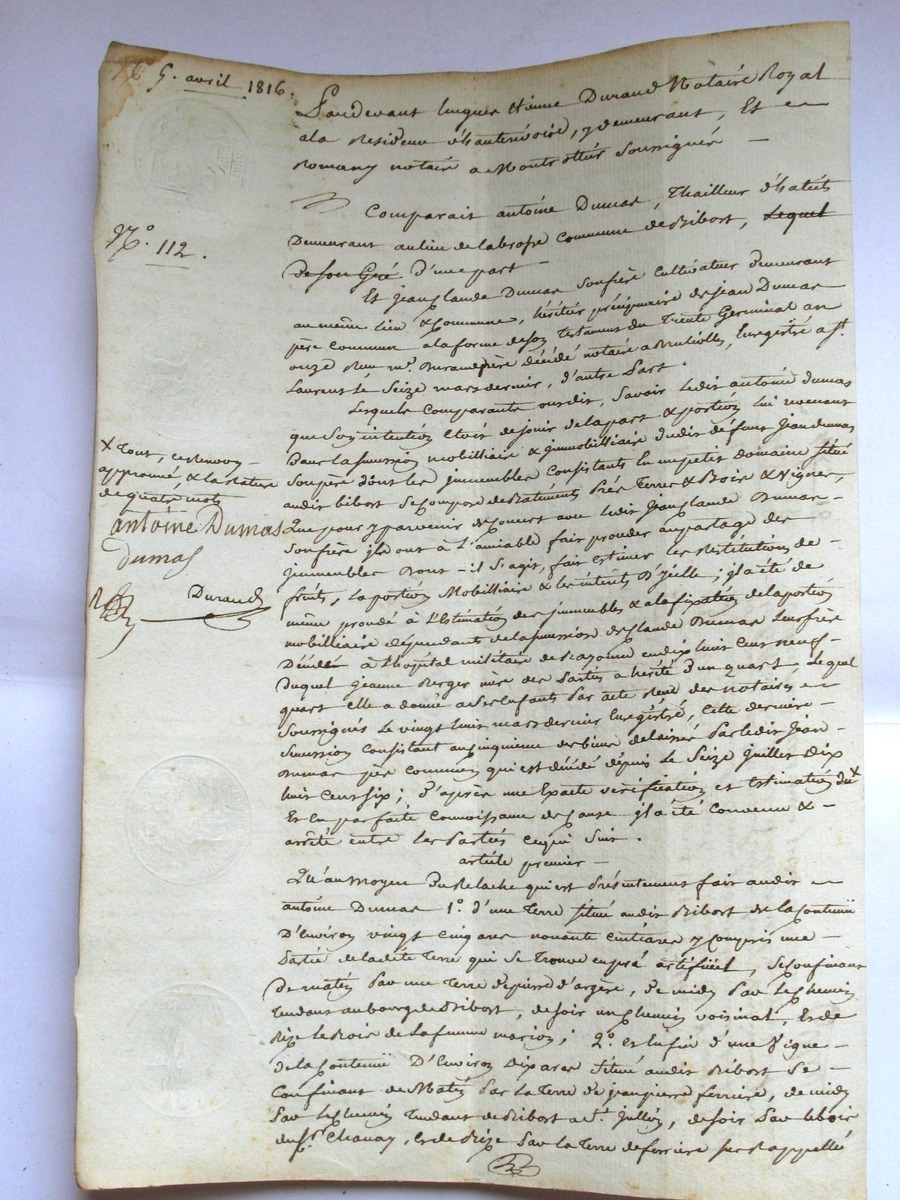 5. avril 1816.
Pardevant Etienne Durand Notaire Royal
a la Residence y demeurant, Et
Romany notaire a Montrottier Soussignés
Comparait antoine Dumas, Thailleur d'habits
N.o 112.
Demeurant au lieu de labrosse Commune de Bibost, Lequel
de Son Gré d'une part
Et jean Claude Dumas Son frère Cultivateur demeurant
au même lieu & Commune, héritier préciputaire de jean Dumas
père Commun a la forme de son Testament du Trente Germinal an
onze Reçu m.e Durand père décédé notaire a Brullioles, Enregistré a S.t
Laurent le Seize mars dernier, d'autre Part.
Lesquels Comparants ont dit, Savoir ledit antoine dumas
que Son intention Etoit de jouir de la part & portion lui revenant
Dans la Succession mobilliaire & jmmobilliaire dudit défunt jean dumas
Son père dont les jmmeubles Consistants En un petit Domaine Situé
audit bibost Se Compose de Batiments Prés Terres & Bois & Vignes,
Que pour y parvenir de Concert avec ledit jean Claude Dumas
Son frère ils ont à L'amiable fait procéder au partage des
jmmeubles Dont il S'agit, fait Estimer les Restitutions de
fruits, la portion Mobilliaire & les intérets D'jcelle; jl a été de
même procédé à L'Estimation des jmmeubles & a la fixation de la portion
mobilliaire dépendants de la Succession de Claude Dumas Leur frère
Décédé à L'hôpital militaire de Bayonne en dix huit Cent neuf
Duquel jeanne Berger mère des Parties a hérité d'un quart, Lequel
quart Elle a donné a Ses Enfants Par acte Reçu des notaires
Soussignés le vingt huit mars dernier Enregistré, Cette dernière
Succession Consistant au Cinquieme des biens délaissés Par ledit Jean
Dumas père Commun qui est décédé depuis le Seize juillet Dix
huit Cent Six; D'après une Exacte vérification et Estimation du x
Et En parfaite Connoissance de Cause jl a été Convenu &
arrêté entre les Parties Ce qui Suit.
x Tout, Ce Renvoi
approuvé, & la Rature
de quatre mots
antoine Dumas
dumas
Durand
article premier
Qu'au Moyen Du Relache qui est Présentement fait audit
antoine Dumas 1.o d'une Terre Situé audit Bibost de la Contenue
D'Environ vingt Cinq ares nonante Centiares y Compris une
Partie de ladite Terre qui Se Trouve en pré artificiel, Se Confinant
De matin Par une Terre de pierre d'argère, de midy Par le Chemin
Tendant au bourg de Bibost, de Soir un Chemin voisinal, Et de
Bize le Bois de La femme marion; 2.o et Enfin d'une Vigne
de la Contenue D'Environ dix ares Situé audit Bibost Se
Confinant de Matin Par la Terre de jean pierre ferrière, de midy
Par le Chemin Tendant de Bibost a S.t Jullien, de Soir Par le bois
du S.r Chanay, Et de Bize Par la Terre de ferrière Sus Rappellé